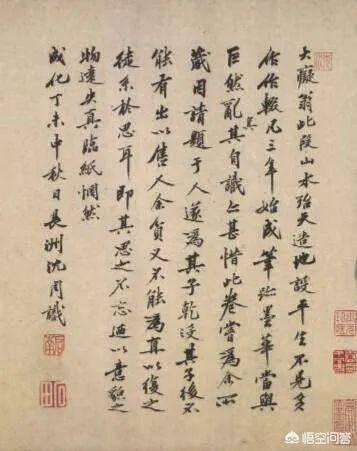 大癡翁此段山水殆天造地設平生不見多
作作輟凡三年始成筆跡墨華當與
巨然亂真其自識亦甚惜此卷嘗為余所
藏因請題于人遂為其子乾沒其子後不
能有出以售人余貧又不能為直以復之
徒系於思耳即其思之不忘迺以意貌之
物遠失真臨紙惘然
成化丁未中秋日長洲沈周識
悟空问答